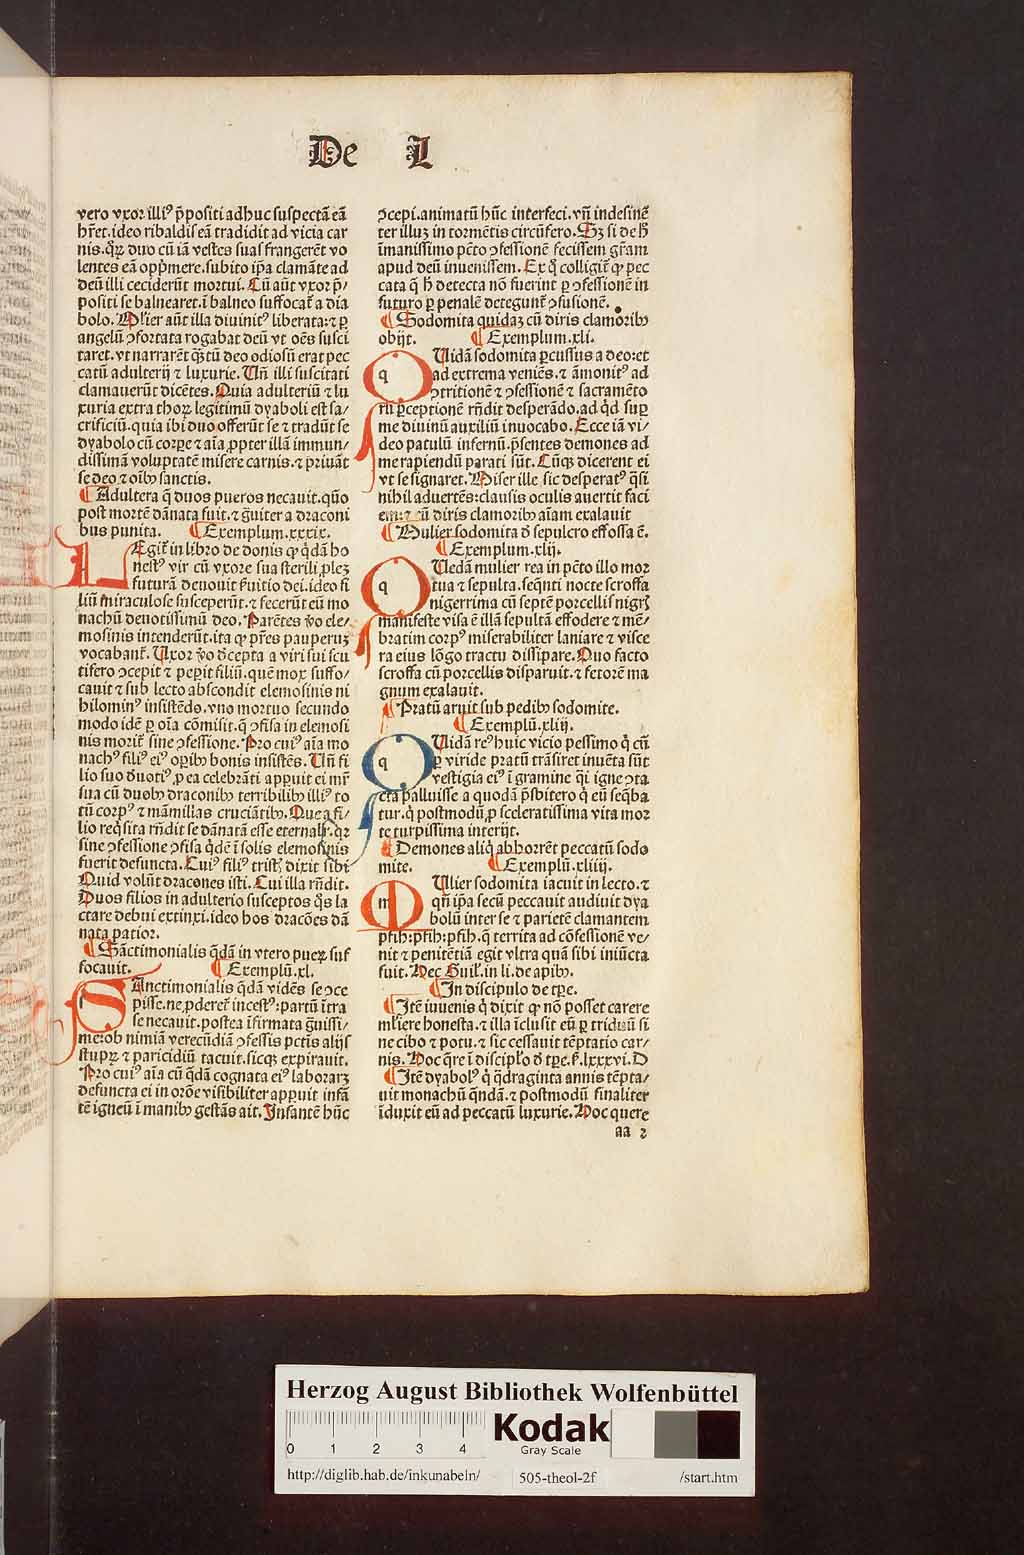 De L
vero vxor illiꝰ p̄positi adhuc suspectā eā
hr̄et.ideo ribaldis eā tradidit ad vicia car
nis.qꝝ duo cū iā vestes suas frangerēt vo
lentes eā opp̄mere.subito ip̄a clamāte ad
deū illi ceciderūt mortui. Cū aūt vxor p̄/
positi se balnearet.ī balneo suffocat̄ a dia
bolo. Mlier aūt illa diuinitꝰ liberata:⁊ ꝑ
angelū ↄfortata rogabat deū vt oēs susci
taret.vt narrarēt qꝫtū deo odiosū erat pec
catū adulterij ⁊ luxurie. Uñ illi suscitati
clamauerūt dicētes. Quia adulteriū ⁊ lu
xuria extra thoꝝ legitimū dyaboli est sa/
crificiū.quia ibi duo offerūt se ⁊ tradūt se
dyabolo cū corꝑe ⁊ aīa ꝓpter illā immun/
dissimā voluptatē misere carnis.⁊ p̄riuāt
se deo ⁊ oībꝰ sanctis.
¶ Adultera q̄ duos pueros necauit.qūo
post mortē dānata fuit.⁊ ḡuiter a draconi
bus punita. ¶ Exemplum.xxxix.
LEgit̄ in libro de donis ꝙ q̄dā ho
nestꝰ vir cū vxore sua sterili ꝓleꝫ
futurā deuouit ẜuitio dei.ideo fi
liū miraculose susceperūt.⁊ fecerūt eū mo
nachū deuotissimū deo. Parētes v̄o ele/
mosinis intenderūt.ita ꝙ pr̄es pauperuꝫ
vocabant̄. Uxor v̄o decepta a viri sui scu
tifero ↄcepit ⁊ peꝑit filiū.quē mox suffo/
cauit ⁊ sub lecto abscondit elemosinis ni
hilominꝰ insistēdo.vno mortuo secundo
modo idē ꝑ oīa cōmisit.q̄ ↄfisa in elemosi
nis morit̄ sine ↄfessione. Pro cuiꝰ aīa mo
nachꝰ filiꝰ eiꝰ oꝑibꝰ bonis insistēs. Uñ fi
lio suo deuotiꝰ ꝓ ea celebrāti apꝑuit ei mr̄
sua cū duobꝰ draconibꝰ terribilibꝰ illiꝰ to
tū corpꝰ ⁊ māmillas cruciātibꝰ. Que a fi/
lio reqͥsita rn̄dit se dānatā esse eternalr̄.qꝛ
sine ↄfessione ↄfisa q̄dē ī solis elemosinis
fuerit defuncta. Cuiꝰ filiꝰ tristis dixit sibi
Quid volūt dracones isti. Cui illa rn̄dit.
Duos filios in adulterio susceptos qͦs la
ctare debui extinxi.ideo hos dracōes dā
nata patior.
¶ Sāctimonialis q̄dā in vtero pueꝝ suf
focauit. ¶ Exemplū.xl.
SAnctimonialis q̄dā vidēs se ↄce
pisse.ne ꝓderet̄ incestꝰ:partū ītra
se necauit.postea īfirmata ḡuissi/
me:ob nimiā verecūdiā ↄfessis pctīs alijs
stupꝝ ⁊ paricidiū tacuit.sicqꝫ expirauit.
Pro cuiꝰ aīa cū q̄dā cognata eiꝰ laboraꝫ
defuncta ei in orōe visibiliter apꝑuit infā
tē igneū ī manibꝰ gestās ait. Infantē hūc
ↄcepi.animatū hūc interfeci.vñ indesinē
ter illuꝫ in tormētis circūfero. Sꝫ si de h̄
īmanissimo pctō ↄfessionē fecissem gr̄am
apud deū inuenissem. Ex q̄ colligit̄ ꝙ pec
cata q̄ h̄ detecta nō fuerint ꝑ ↄfessionē in
futuro ꝑ penalē detegunt̄ ↄfusionē.
¶ Sodomita quidaꝫ cū diris clamoribꝰ
obijt. ¶ Exemplum.xli.
qUidā sodomita ꝑcussus a deo:et
ad extrema veniēs.⁊ āmonitꝰ ad
ↄtritionē ⁊ ↄfessionē ⁊ sacramēto
rū ꝑceptionē rn̄dit desperādo.ad qͥd suꝑ
me diuinū auxiliū inuocabo. Ecce iā vi/
deo patulū infernū.p̄sentes demones ad
me rapiendū parati sūt. Cūqꝫ dicerent ei
vt se signaret. Miser ille sic desperatꝰ q̄si
nihil aduertēs:clausis oculis auertit faci
em:⁊ cū diris clamoribꝰ aīam exalauit
¶ Mulier sodomita de sepulcro effossa ē.
¶ Exemplum.xlij.
qUedā mulier rea in pctō illo mor
tua ⁊ sepulta.seq̄nti nocte scroffa
nigerrima cū septē porcellis nigris
manifeste visa ē illā sepultā effodere ⁊ mē/
bratim corpꝰ miserabiliter laniare ⁊ visce
ra eius lōgo tractu dissipare. Quo facto
scroffa cū porcellis disparuit.⁊ fetorē ma
gnum exalauit.
¶ Pratū aruit sub pedibꝰ sodomite.
¶ Exemplū.xliij.
qUidā reꝰ huic vicio pessimo qͥ cū
ꝑ viride pratū trāsiret inuēta sūt
vestigia eiꝰ ī gramine q̄i igne ↄta
cta palluisse a quodā p̄sbitero qͥ eū seq̄ba
tur.qͥ postmodū ꝓ sceleratissima vita mor
te turpissima interijt.
¶ Demones aliqͥ abhorrēt peccatū sodo
mite. ¶ Exemplū.xliiij.
mUlier sodomita iacuit in lecto.⁊
qn̄ ip̄a secū peccauit audiuit dya
bolū inter se ⁊ parietē clamantem
pfih:pfih:pfih.q̄ territa ad cōfessionē ve/
nit ⁊ penitētiā egit vltra quā sibi iniūcta
fuit. Hec Guil'.in li.de apibꝰ.
¶ In discipulo de tꝑe.
¶ Itē iuuenis qͥ dixit ꝙ nō posset carere
mliere honesta.⁊ illa īclusit eū ꝑ triduū si
ne cibo ⁊ potu.⁊ sic cessauit tēptatio car/
nis. Hoc qͥre ī discipl'o de tꝑe.ẜ.lxxxvi.D
¶ Itē dyabolꝰ qͥ q̄draginta annis tēpta/
uit monachū quendā.⁊ postmodū finaliter
īduxit eū ad peccatū luxurie. Hoc quere
aa 2
Herzog August Bibliothek Wolfenbüttel
0 1 2 3 4
Kodak
Gray Scale
http://diglib.hab.de/inkunabeln/ 505-theol-2f /start.htm